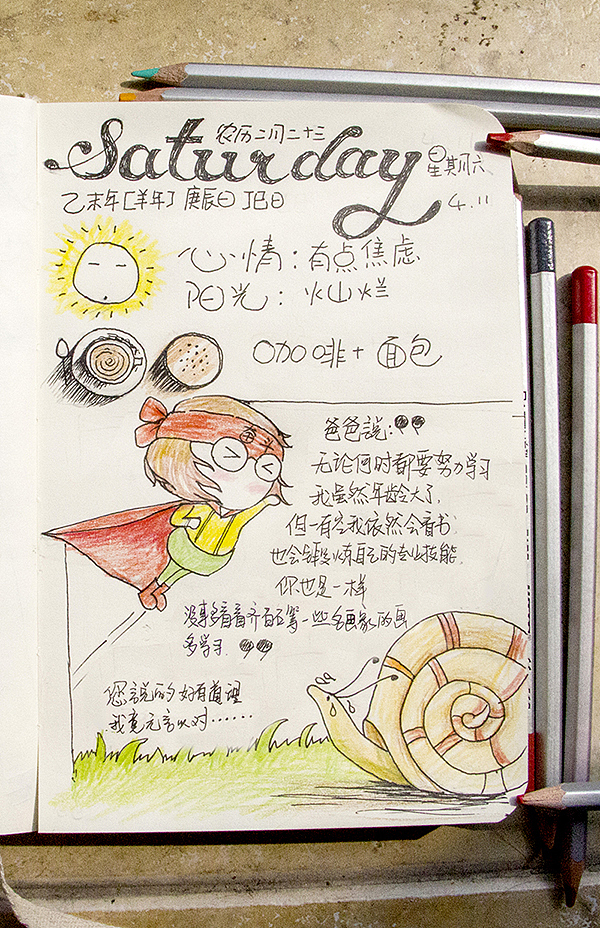 农历二月二十三
Saturday
星期六
乙未年[羊年] 庚辰日 丁巳日
4.11
心情：有点焦虑
阳光：灿烂
咖啡+面包
奋斗
爸爸説：
无论何时都要努力学习
我虽然年龄大了，
但一有空我依然会看书
也会锻炼自己的专业技能，
你也是一样
没事多看看齐白石等一些名画家的画
多学习
您説的好有道理
我竟无言以对……